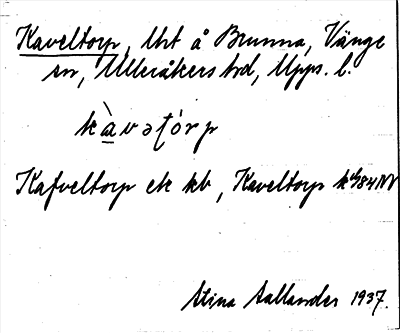 Kaveltorp, lht å Brunna, Vänge
sn, Ulleråkers hd, Upps. l.
kàvəƭórp
Kafveltorp ek kb, Kaveltorp k 84 NV
Stina Sallander 1937.